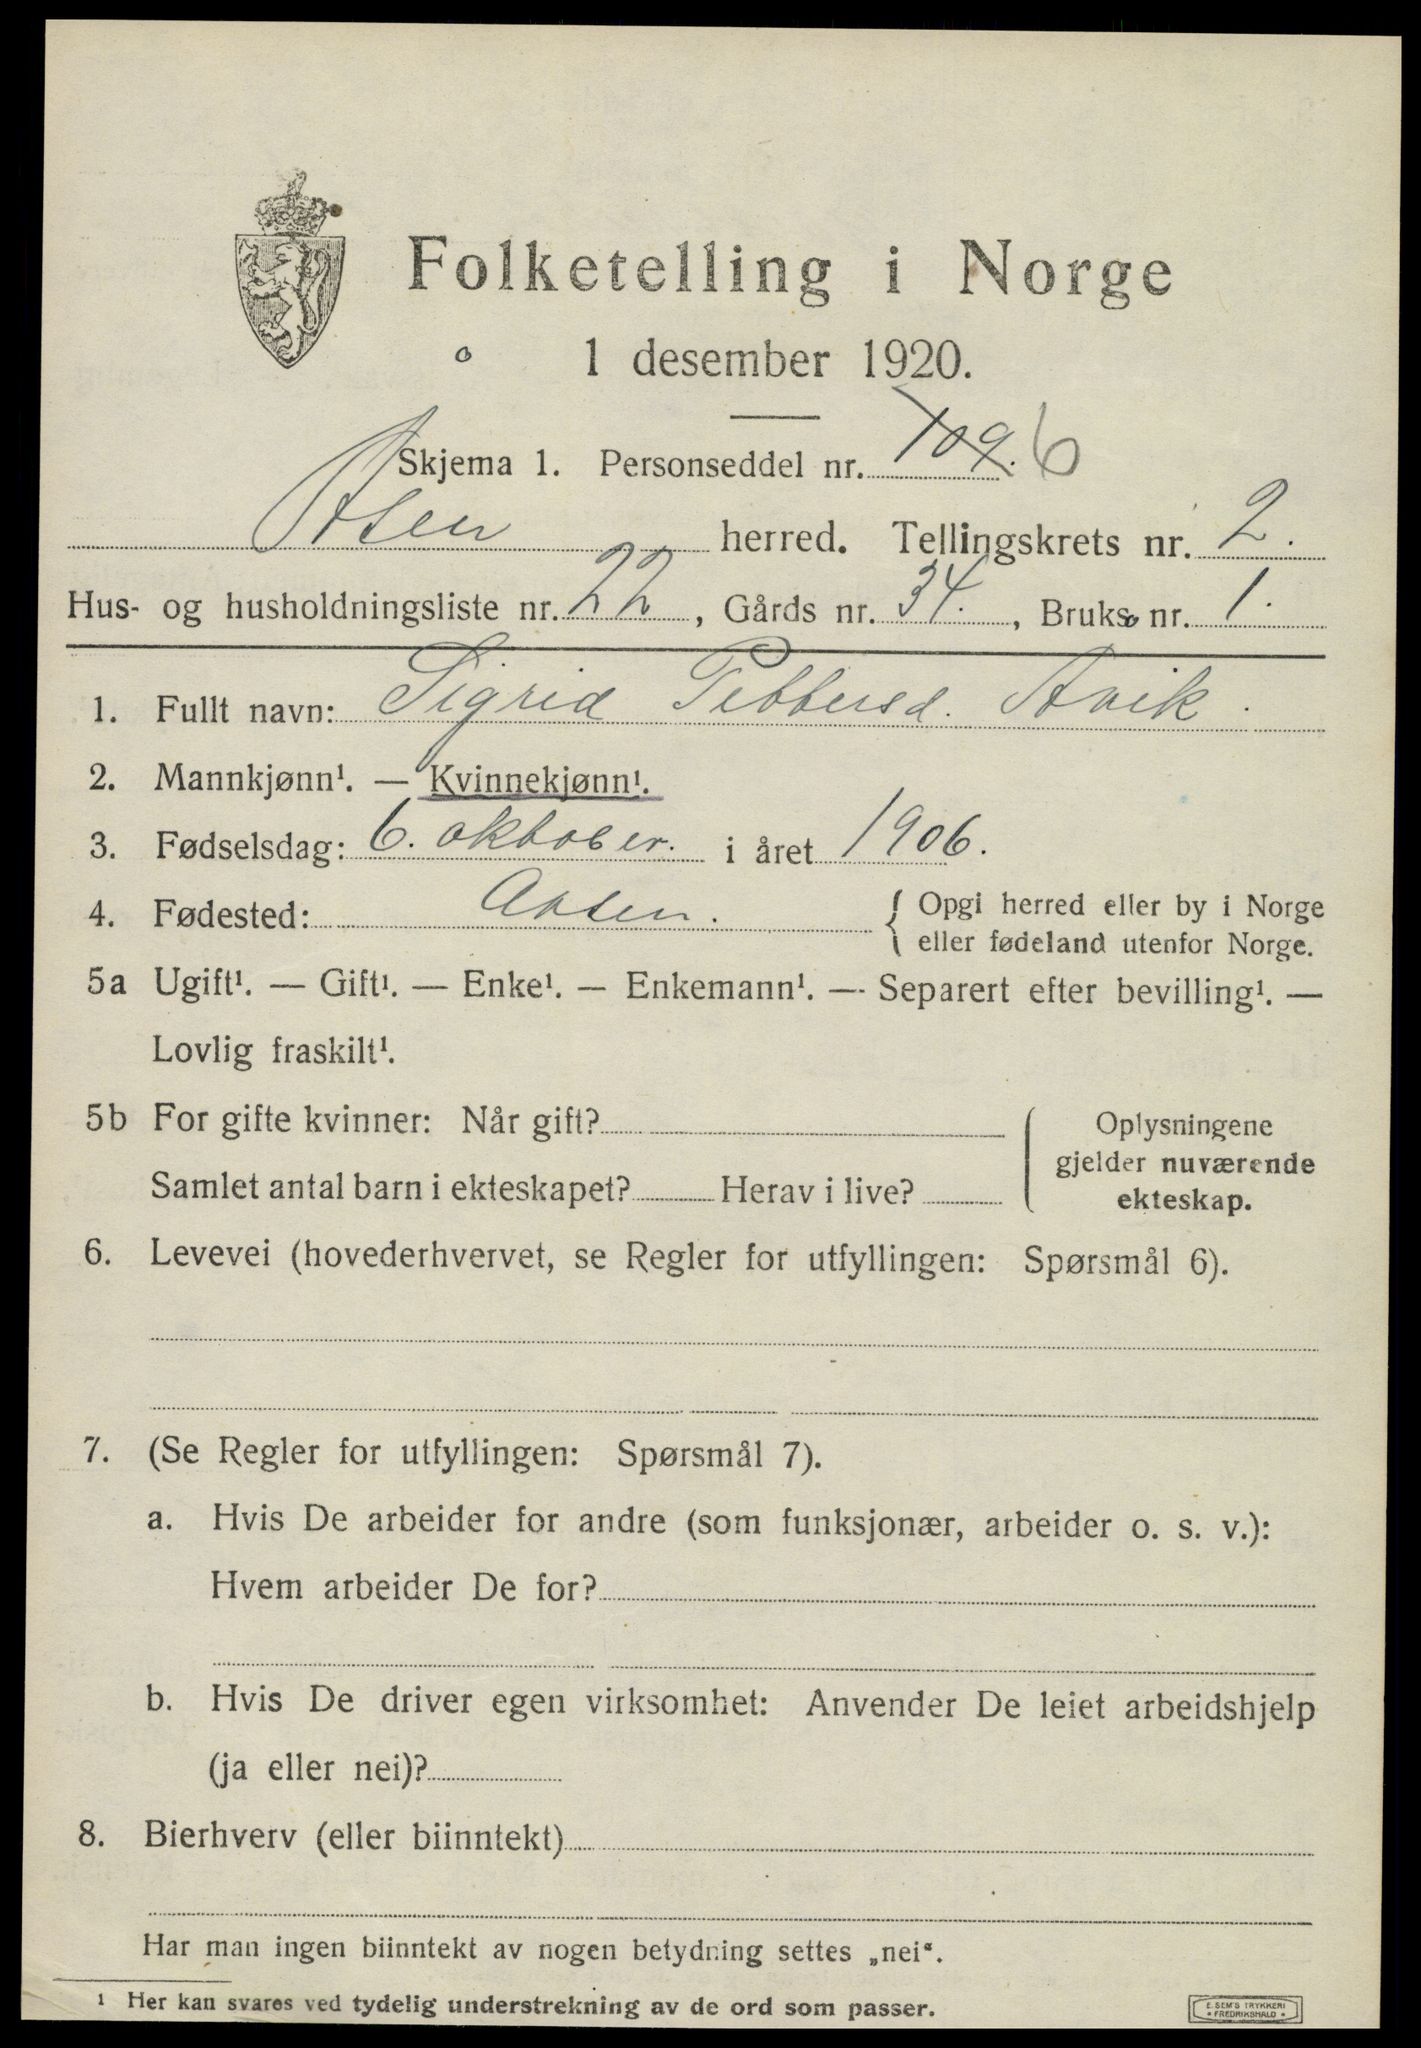 Folketelling i Norge
1 desember 1920.
Skjema 1. Personseddel nr. 109. 6
Åsen herred. Tellingskrets nr. 2.
Hus- og husholdningsliste nr. 22, Gårds nr. 34., Bruks nr. 1.
1. Fullt navn: Sigrid Pettersd. Avik.
2. Mannkjønn¹. — Kvinnekjønn¹.
3. Fødselsdag: 6. oktober. i året 1906.
4. Fødested: Aasen. { Opgi herred eller by i Norge
eller fødeland utenfor Norge.
5a Ugift¹. — Gift¹. — Enke¹. — Enkemann¹. — Separert efter bevilling¹. —
Lovlig fraskilt¹.
5b For gifte kvinner: Når gift?
Samlet antal barn i ekteskapet? Herav i live?
Oplysningene
gjelder nuværende
ekteskap.
6. Levevei (hovederhvervet, se Regler for utfyllingen: Spørsmål 6).
7. (Se Regler for utfyllingen: Spørsmål 7).
a. Hvis De arbeider for andre (som funksjonær, arbeider o. s. v.):
Hvem arbeider De for?
b. Hvis De driver egen virksomhet: Anvender De leiet arbeidshjelp
(ja eller nei)?
8. Bierhverv (eller biinntekt)
Har man ingen biinntekt av nogen betydning settes „nei“.
¹ Her kan svares ved tydelig understrekning av de ord som passer.
E. SEM'S TRYKKERI
• FREDRIKSHALD •